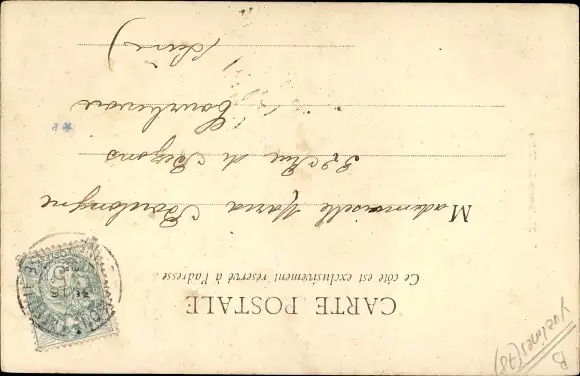 CARTE POSTALE
Ce côté est exclusivement réservé à l'adresse
Mademoiselle Maria Boulongne
Rue de Bezons
Courbevoie
(Seine)
B
Yvelines (78)